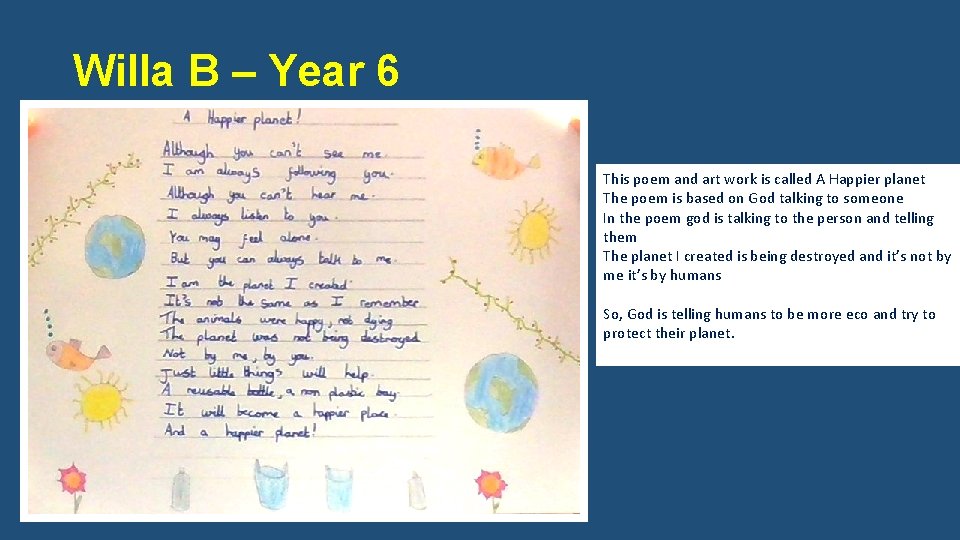 Willa B – Year 6
A Happier planet!
Although you can't see me.
I am always following you.
Although you can't hear me.
I always listen to you.
You may feel alone.
But you can always talk to me.
I am the planet I created.
It's not the same as I remember
The animals were happy, not dying
The planet was not being destroyed
Not by me, by you.
Just little things will help.
A reusable bottle, a non plastic bag.
It will become a happier place.
And a happier planet!
This poem and art work is called A Happier planet
The poem is based on God talking to someone
In the poem god is talking to the person and telling
them
The planet I created is being destroyed and it's not by
me it's by humans
So, God is telling humans to be more eco and try to
protect their planet.